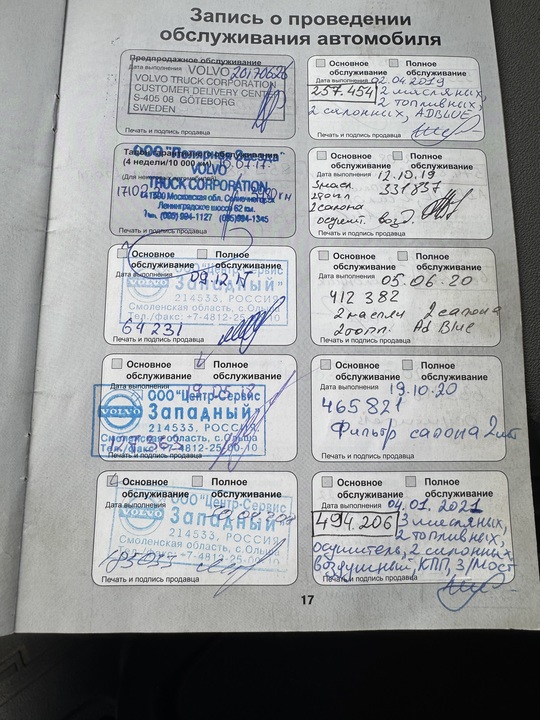 Запись о проведении
обслуживания автомобиля
Предпродажное обслуживание
Дата выполнения
VOLVO
VOLVO TRUCK CORPORATION
CUSTOMER DELIVERY CENTER
S-405 08 GÖTEBORG
SWEDEN
Печать и подпись продавца
(4 недели/10 000 км)
VOLVO
TRUCK CORPORATION
Ленинградское шоссе 62 км.
Печать и подпись продавца
Основное обслуживание
Полное обслуживание
Дата выполнения 09.12.17
ООО "Центр-Сервис
Западный"
VOLVO
214533, РОССИЯ
Смоленская область, с.Ольша
Тел./факс: +7-4812-25-00-10
64 231
Печать и подпись продавца
Основное обслуживание
Полное обслуживание
Дата выполнения
ООО "Центр-Сервис
Западный"
VOLVO
214533, РОССИЯ
Смоленская область, с.Ольша
Тел./факс: +7-4812-25-00-10
Печать и подпись продавца
Основное обслуживание
Полное обслуживание
ООО "Центр-Сервис
Западный"
VOLVO
214533, РОССИЯ
Смоленская область, с.Ольша
Тел./факс: +7-4812-25-00-10
Печать и подпись продавца
Основное обслуживание
Полное обслуживание
Дата выполнения 02.04.2019
257.454 2 масляных,
2 топливных,
2 салонных, ADBLUE
Печать и подпись продавца
Основное обслуживание
Полное обслуживание
Дата выполнения 12.10.19
331837
2 салона
осушит. возд.
Печать и подпись продавца
Основное обслуживание
Полное обслуживание
Дата выполнения 05.06.20
412 382
2 масли 2 салона
2 топл. Ad Blue
Печать и подпись продавца
Основное обслуживание
Полное обслуживание
Дата выполнения 19.10.20
465821
Фильтр салона 2шт
Печать и подпись продавца
Основное обслуживание
Полное обслуживание
Дата выполнения 04.01.2021
494.206 3 масляных,
2 топливных,
осушитель, 2 салонных
воздушный, КПП, З/мост
Печать и подпись продавца
17